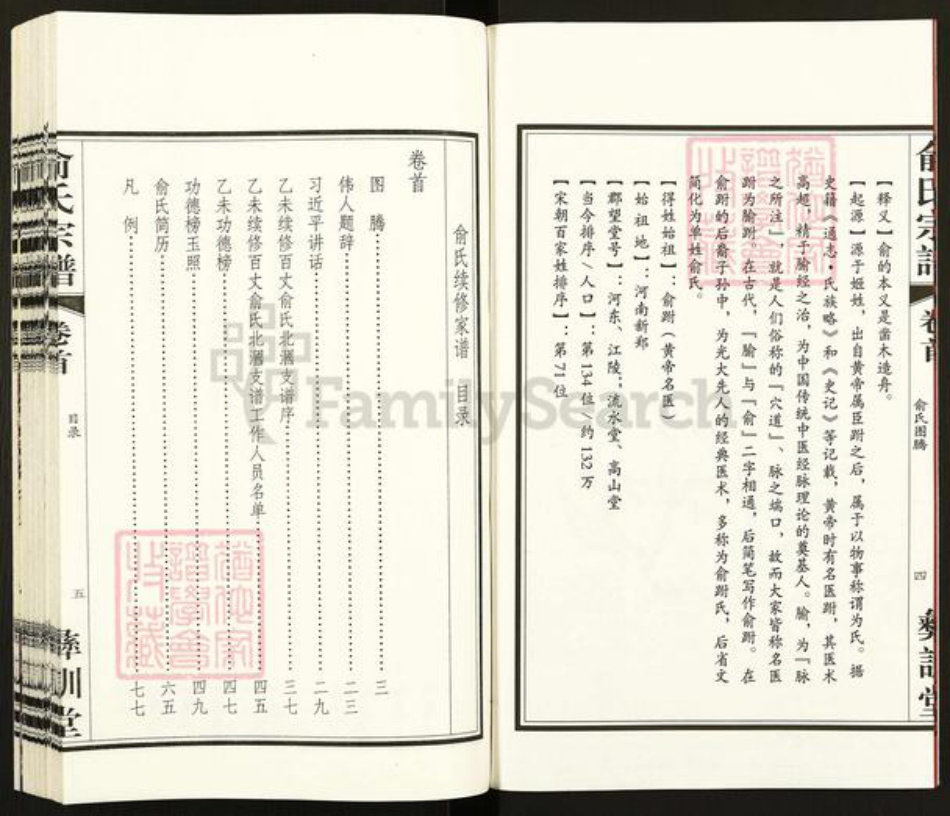 俞氏宗谱
卷首
俞氏图腾
四
彝训堂
【释义】俞的本义是凿木造舟。
【起源】源于姬姓，出自黄帝属臣跗之后，属于以物事称谓为氏。据
史籍《通志·氏族略》和《史记》等记载，黄帝时有名医跗，其医术
高超，精于腧经之治，为中国传统中医经脉理论的奠基人。腧，为「脉
之所注」，就是人们俗称的「穴道」、脉之端口，故而大家皆称名医
跗为腧跗。在古代，「腧」与「俞」二字相通，后简笔写作俞跗。在
俞跗的后裔子孙中，为光大先人的经典医术，多称为俞跗氏，后省文
简化为单姓俞氏。
【得姓始祖】：俞跗（黄帝名医）
【始祖地】：河南新郑
【郡望堂号】：河东、江陵；流水堂、高山堂
【当今排序/人口】：第134位/约132万
【宋朝百家姓排序】：第71位
俞氏续修家谱 目录
卷首
图 腾……三
伟人题辞……二三
习近平讲话……二九
乙未续修百丈俞氏北溷支谱序……三七
乙未续修百丈俞氏北溷支谱工作人员名单……四五
乙未功德榜……四七
功德榜玉照……四九
俞氏简历……六五
凡 例……七七
俞氏宗谱
卷首
目录
五
彝训堂
FamilySearch